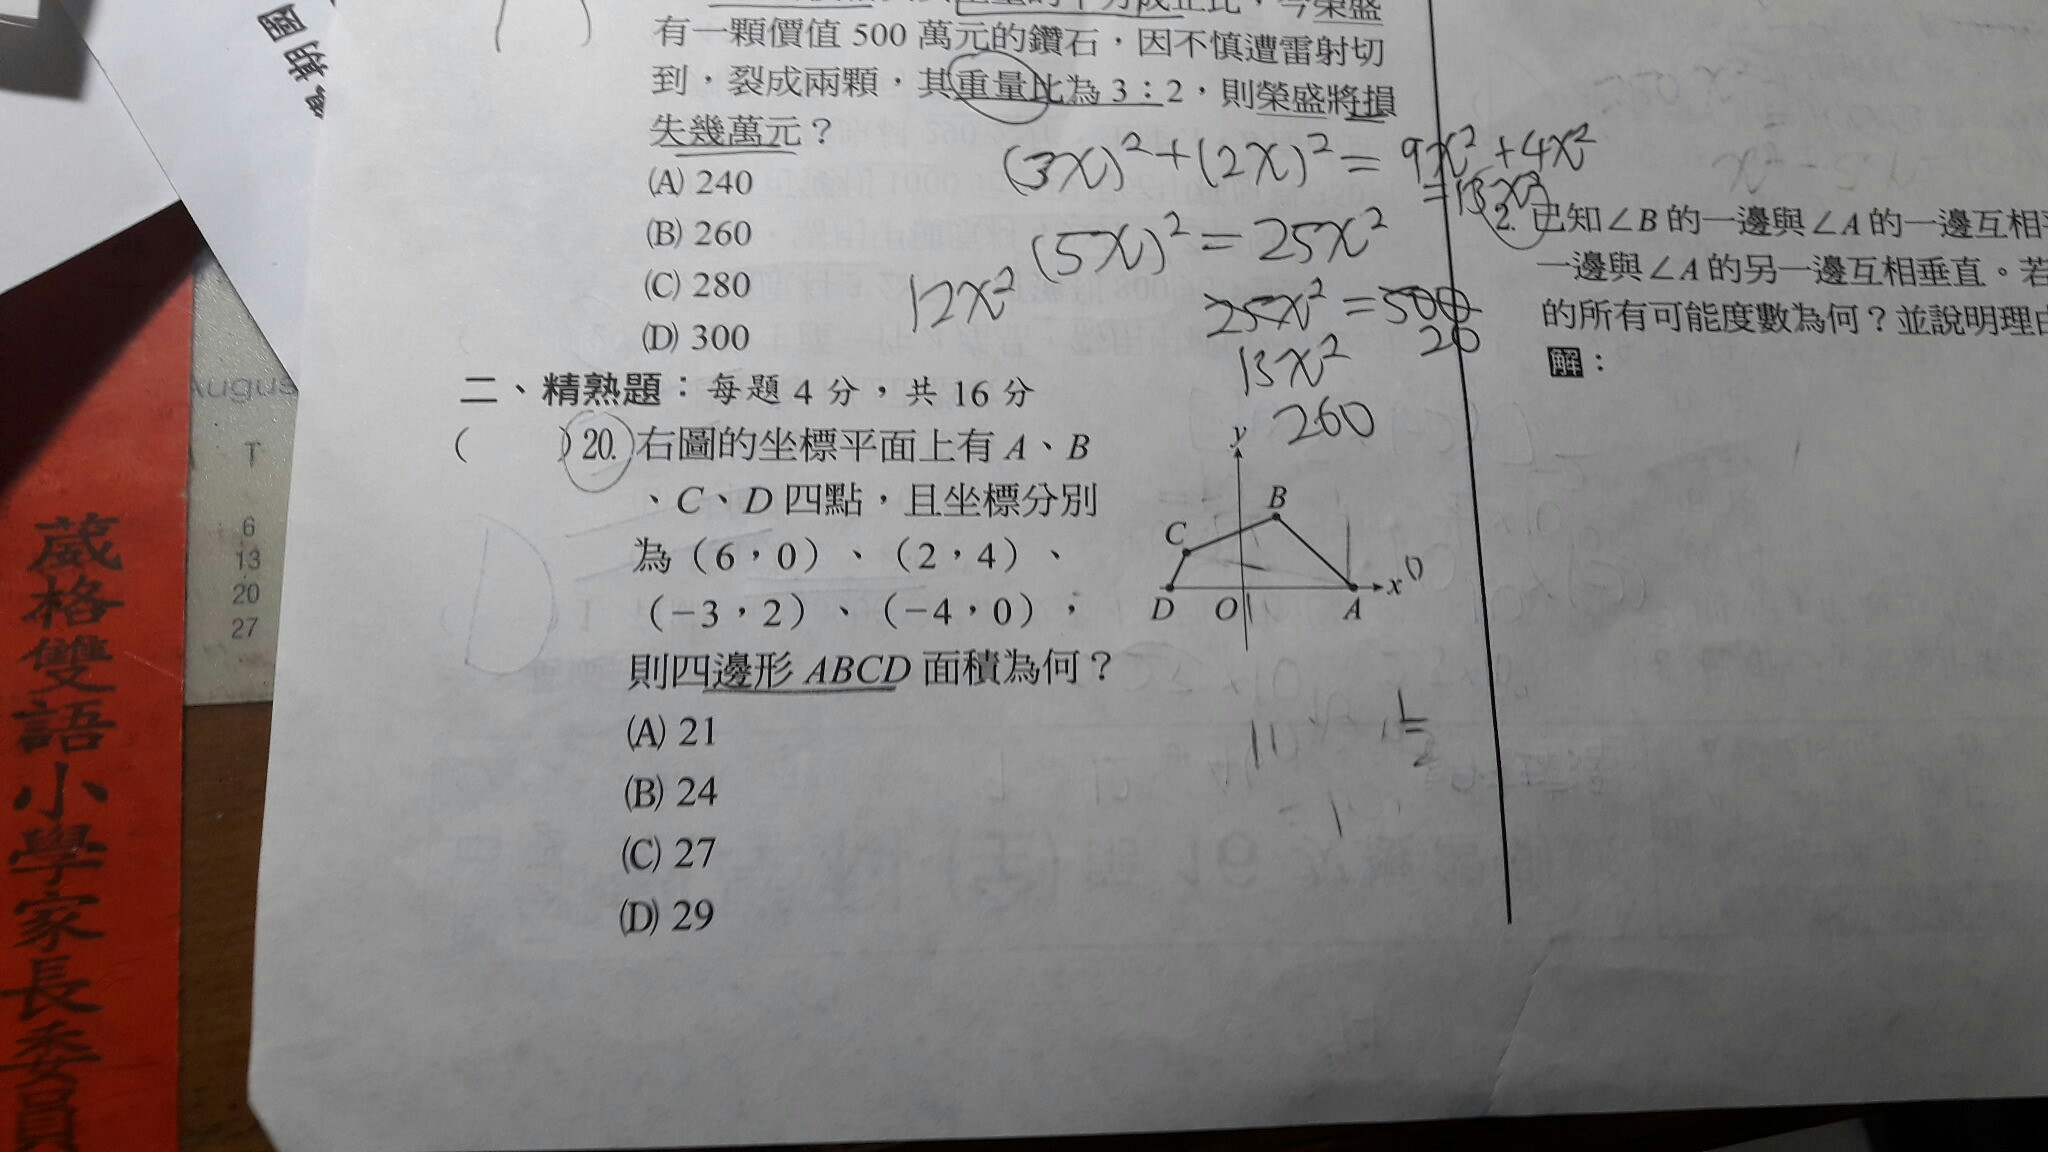 有一顆價值 500 萬元的鑽石，因不慎遭雷射切
到，裂成兩顆，其重量比為 3：2，則榮盛將損
失幾萬元？
(A) 240
(B) 260
(C) 280
(D) 300
(3x)² + (2x)² = 9x² + 4x²
= 13x²
(5x)² = 25x²
12x²
25x² = 500
20
13x²
260
二、精熟題：每題 4 分，共 16 分
(　　) 20. 右圖的坐標平面上有 A、B
、C、D 四點，且坐標分別
為（6，0）、（2，4）、
（−3，2）、（−4，0），
則四邊形 ABCD 面積為何？
(A) 21
(B) 24
(C) 27
(D) 29
y
B
C
x
D O A
2. 已知∠B 的一邊與∠A 的一邊互相
一邊與∠A 的另一邊互相垂直。若
的所有可能度數為何？並說明理由
解：
葳格雙語小學家長委員
Augus
T
6
13
20
27